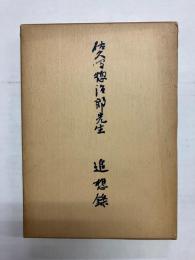 佐久間惣治郎先生 追想錄